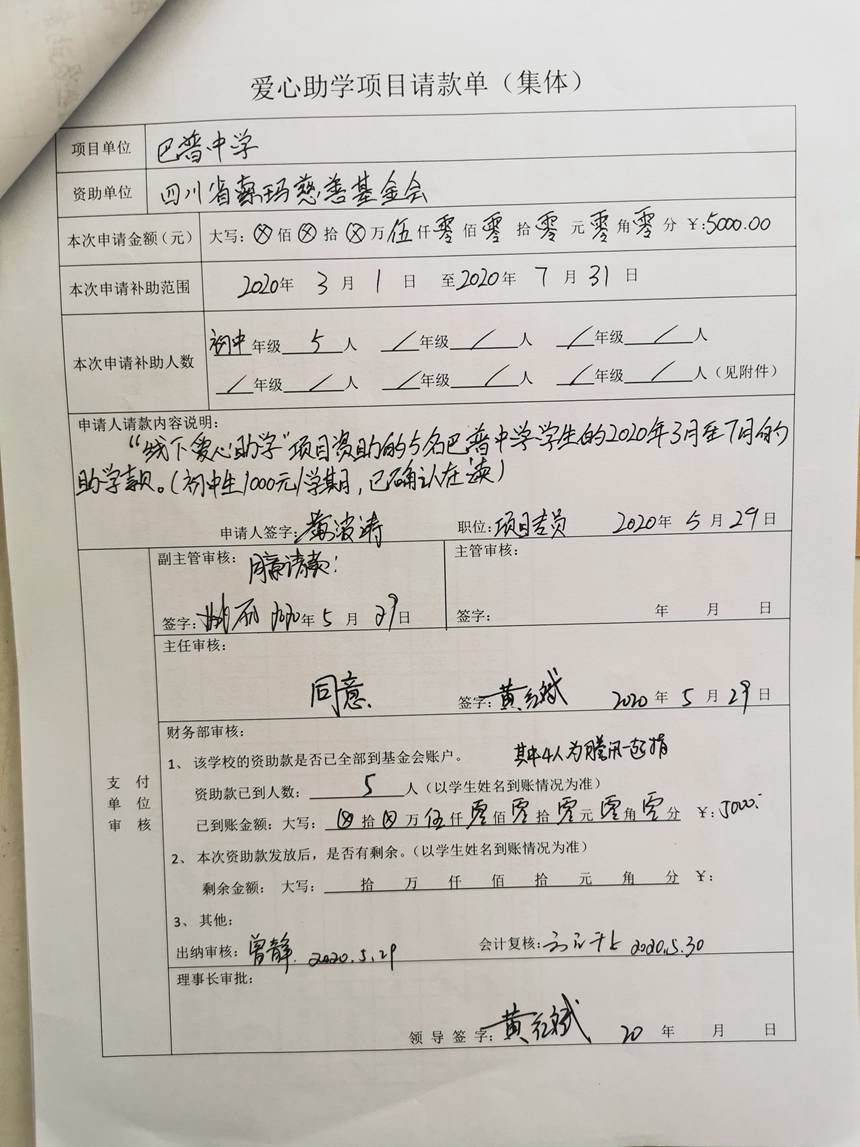 爱心助学项目请款单（集体）
项目单位 巴普中学
资助单位 四川省索玛慈善基金会
本次申请金额（元） 大写：ⓧ佰ⓧ拾ⓧ万伍仟零佰零拾零元零角零分 ￥:5000.00
本次申请补助范围 2020年3月1日 至2020年7月31日
本次申请补助人数 初中年级5人 /年级/人 /年级/人
/年级/人 /年级/人 /年级/人（见附件）
申请人请款内容说明：
“线下爱心助学”项目资助的5名巴普中学学生的2020年3月至7月的
助学款。(初中生1000元/学期，已确认在读)
申请人签字：黄波涛 职位：项目专员 2020年5月29日
副主管审核： 同意请款！ 主管审核：
签字： 2020年5月29日 签字： 年 月 日
主任审核：
同意. 签字：黄红斌 2020年5月29日
支付
单位
审核
财务部审核：
1、该学校的资助款是否已全部到基金会账户。 其中4人为腾讯一起捐
资助款已到人数：5人（以学生姓名到账情况为准）
已到账金额：大写：ⓧ拾ⓧ万伍仟零佰零拾零元零角零分 ￥：5000.-
2、本次资助款发放后，是否有剩余。（以学生姓名到账情况为准）
剩余金额： 大写： 拾 万 仟 佰 拾 元 角 分 ￥：
3、其他：
出纳审核：曾静. 2020.5.29 会计复核： 2020.5.30
理事长审批：
领导签字：黄红斌 20 年 月 日